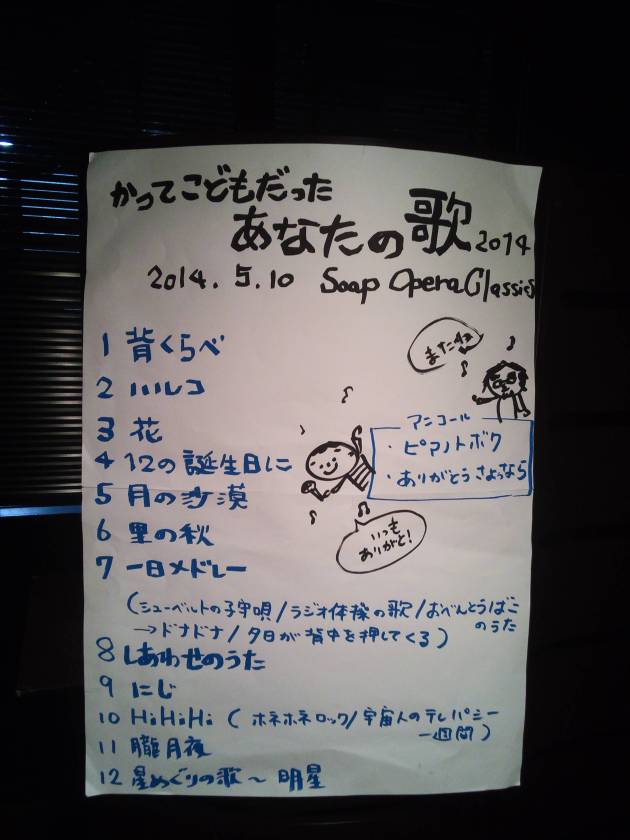 かつてこどもだった
あなたの歌 2014
2014.5.10 Soap Opera Classics
1 背くらべ
2 ハルコ
3 花
4 12の誕生日に
5 月の沙漠
6 里の秋
7 一日メドレー
(シューベルトの子守唄/ラジオ体操の歌/おべんとうばこ
のうた
→ドナドナ/夕日が背中を押してくる)
8 しあわせのうた
9 にじ
10 HiHiHi (ホネホネロック/宇宙人のテレパシー
一週間)
11 朧月夜
12 星めぐりの歌〜明星
またねぇ
アンコール
・ピアノトボク
・ありがとうさよなら
いつも
ありがと!